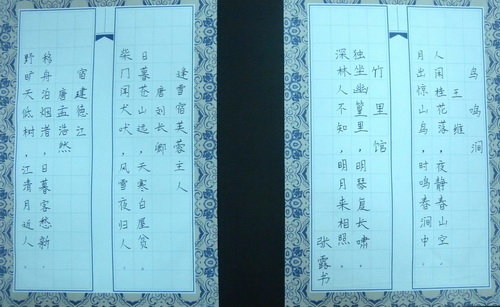 鸟鸣涧
王维
人闲桂花落，夜静春山空。
月出惊山鸟，时鸣春涧中。
竹里馆
独坐幽篁里，明琴复长啸。
深林人不知，明月来相照。
张露书
逢雪宿芙蓉主人
唐刘长卿
日暮苍山远，天寒白屋贫。
柴门闻犬吠，风雪夜归人。
宿建德江
唐孟浩然
移舟泊烟渚，日暮客愁新。
野旷天低树，江清月近人。